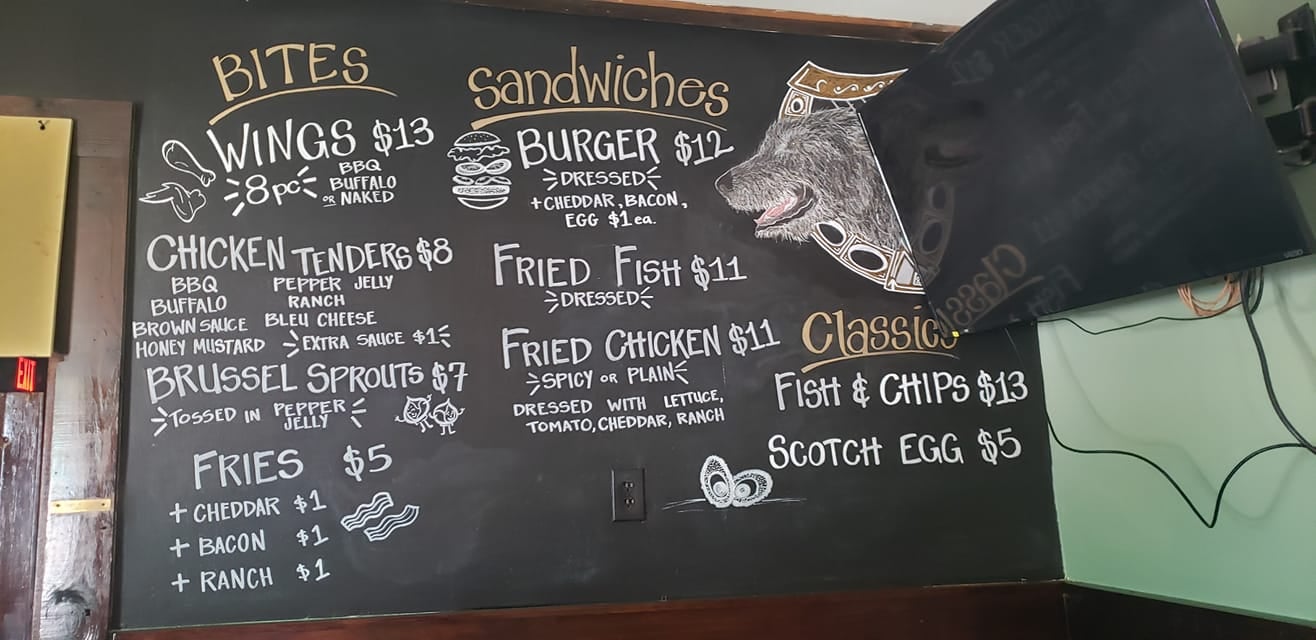 BITES
WINGS $13
8pc
BBQ
BUFFALO
OR NAKED
CHICKEN TENDERS $8
BBQ
BUFFALO
BROWN SAUCE
HONEY MUSTARD
PEPPER JELLY
RANCH
BLEU CHEESE
EXTRA SAUCE $1
BRUSSEL SPROUTS $7
TOSSED IN PEPPER
JELLY
FRIES $5
+ CHEDDAR $1
+ BACON $1
+ RANCH $1
Sandwiches
BURGER $12
DRESSED
+ CHEDDAR, BACON,
EGG $1 ea.
FRIED FISH $11
DRESSED
FRIED CHICKEN $11
SPICY OR PLAIN
DRESSED WITH LETTUCE,
TOMATO, CHEDDAR, RANCH
Classics
FISH & CHIPS $13
SCOTCH EGG $5
EXIT